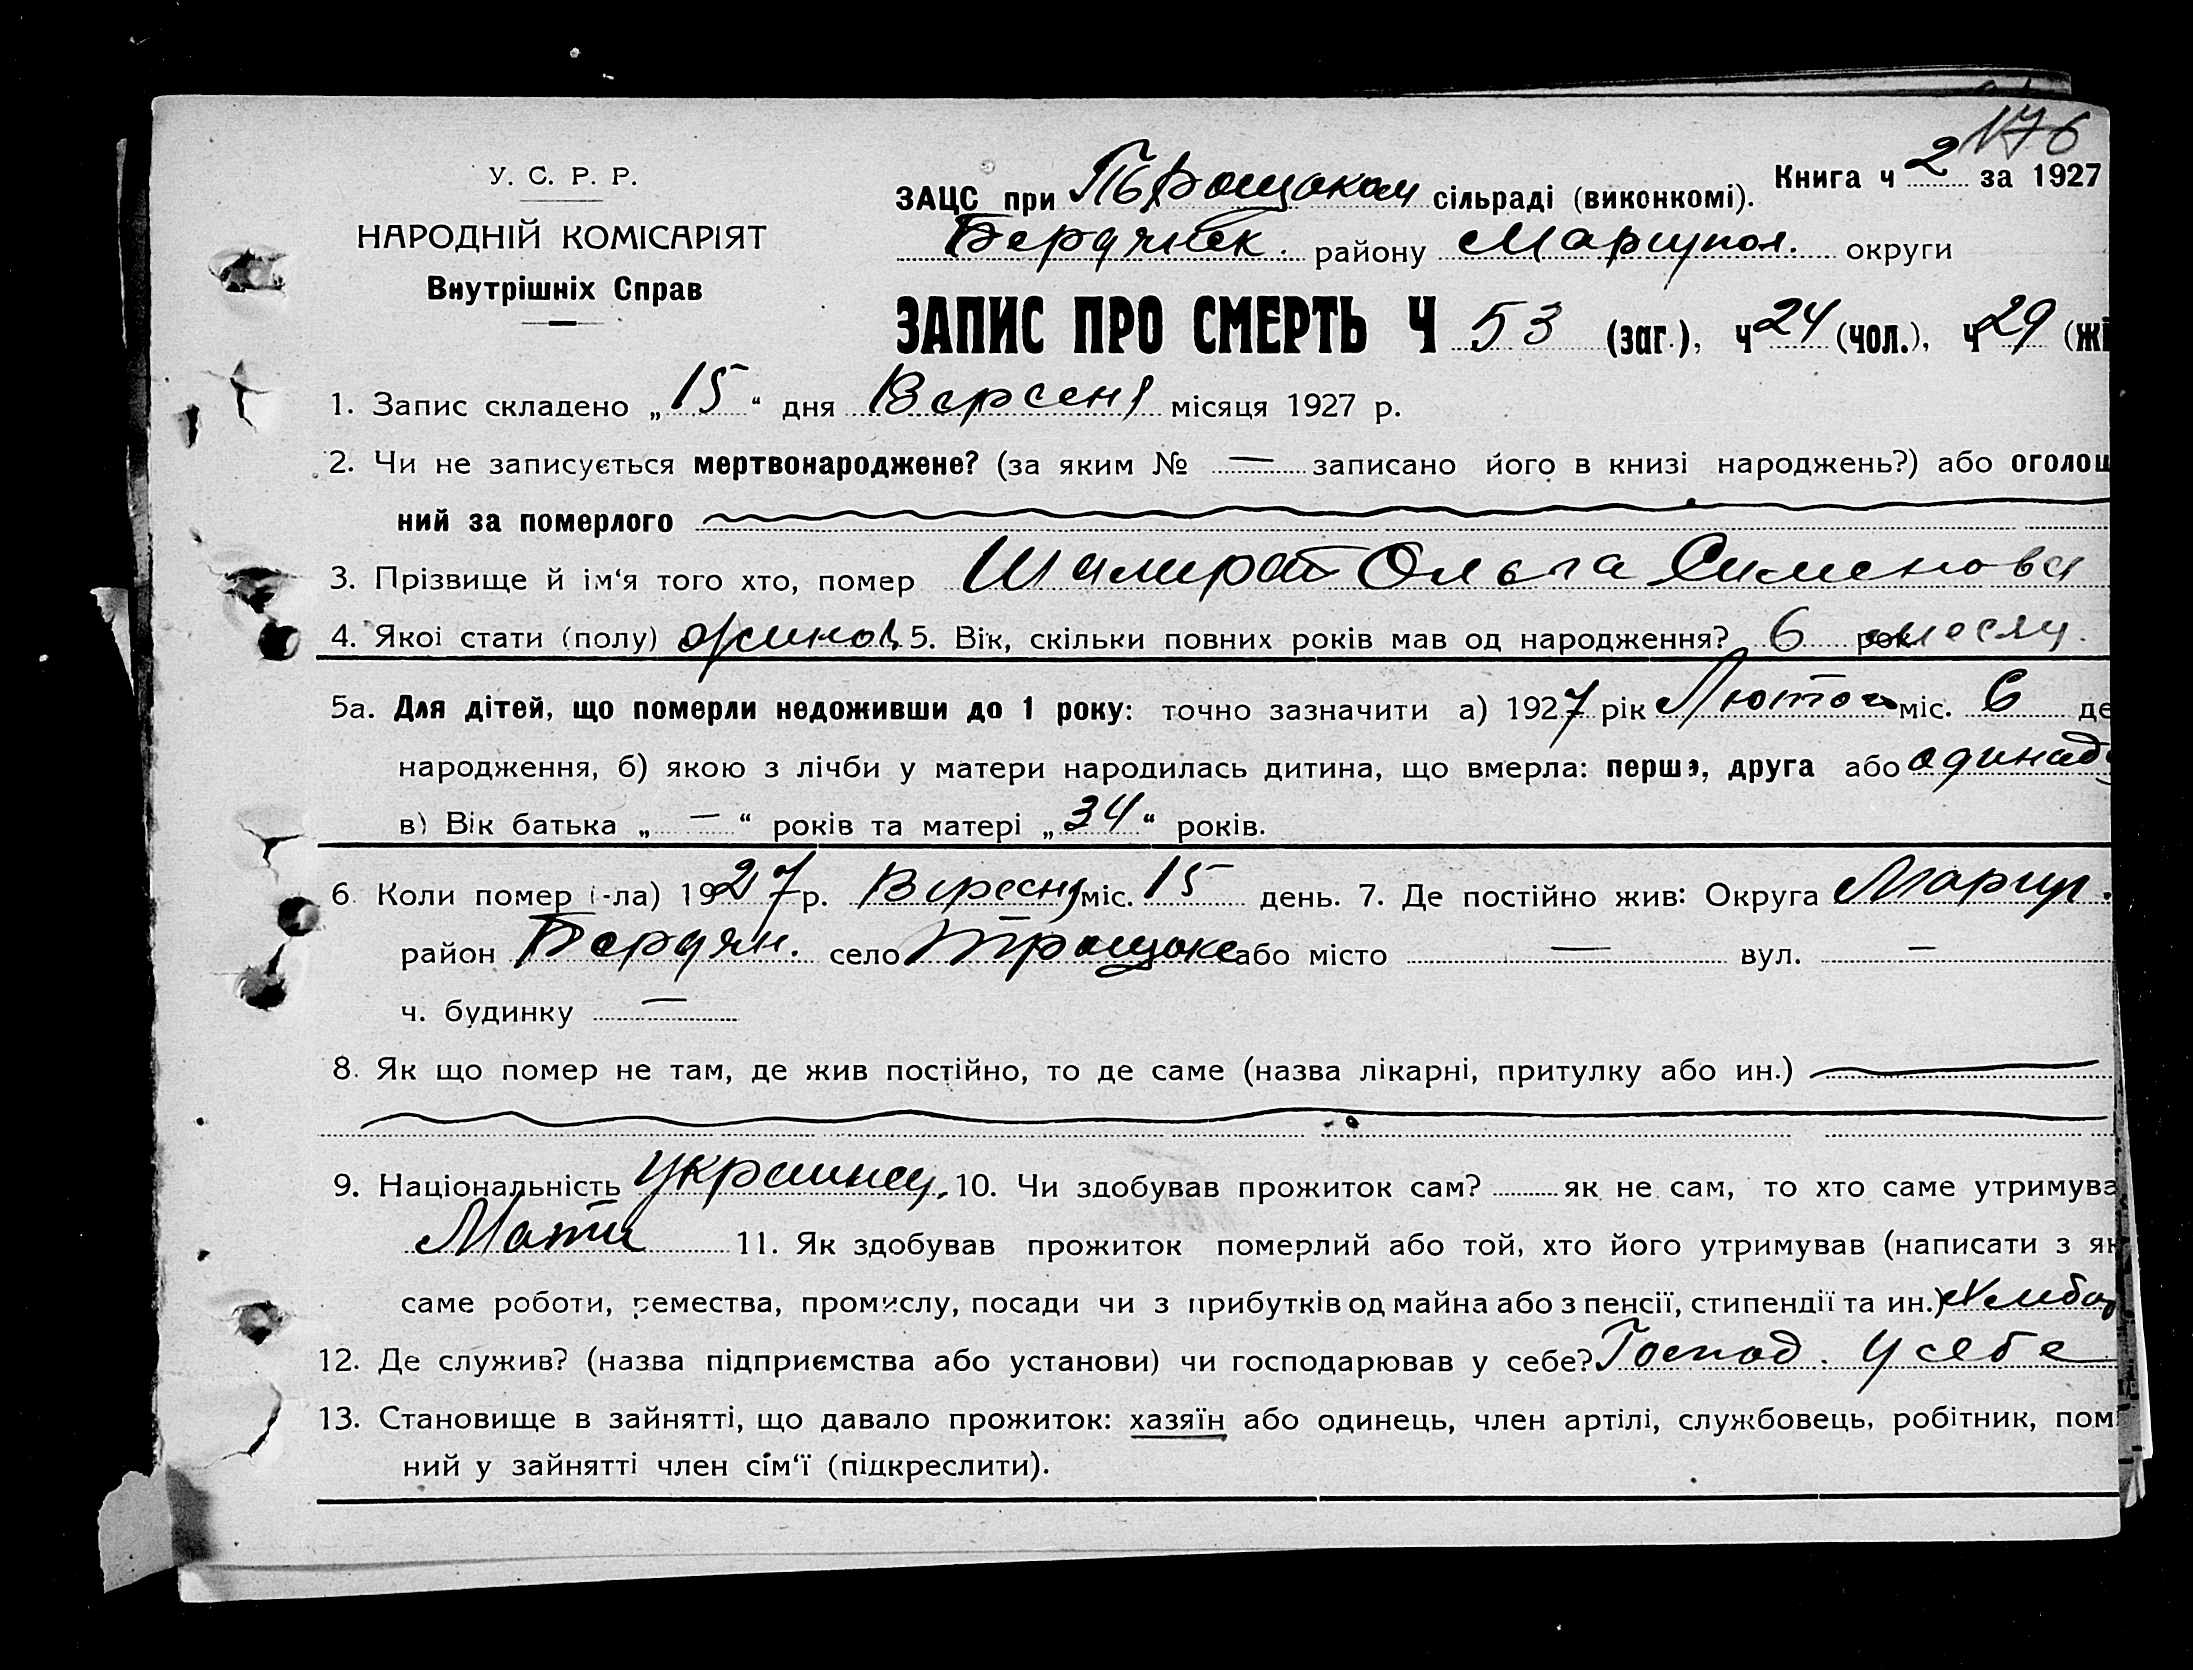 176
У. С. Р. Р.
НАРОДНІЙ КОМІСАРІЯТ
Внутрішніх Справ
Книга ч 2 за 1927
ЗАЦС при сільраді (виконкомі).
Бердянск. району Мариупол. округи
ЗАПИС ПРО СМЕРТЬ Ч 53 (заг.), ч 24 (чол.), ч 29 (жі
1. Запис складено „15“ дня Версеня місяця 1927 р.
2. Чи не записується мертвонароджене? (за яким № — записано його в книзі народжень?) або оголош
ний за померлого
3. Прізвище й ім‘я того хто, помер Ольга Сименова
4. Якоі стати (полу) жиноч. 5. Вік, скільки повних років мав од народження? 6 рок месяц.
5а. Для дітей, що померли недоживши до 1 року: точно зазначити а) 1927 рік Лютого міс. 6 де
народження, б) якою з лічби у матери народилась дитина, що вмерла: перша, друга або одинадц
в) Вік батька „ — “ років та матері „34“ років.
6. Коли помер (-ла) 1927 р. Вересня міс. 15 день. 7. Де постійно жив: Округа Мариуп.
район Бердян. село або місто — вул. —
ч. будинку —
8. Як що помер не там, де жив постійно, то де саме (назва лікарні, притулку або ин.)
9. Національність Украинец. 10. Чи здобував прожиток сам? як не сам, то хто саме утримува
Мати 11. Як здобував прожиток померлий або той, хто його утримував (написати з як
саме роботи, ремества, промислу, посади чи з прибутків од майна або з пенсії, стипендії та ин.) Хлибор
12. Де служив? (назва підприємства або установи) чи господарював у себе? Господ. у себе
13. Становище в зайнятті, що давало прожиток: хазяїн або одинець, член артілі, службовець, робітник, пом
ний у зайнятті член сім‘ї (підкреслити).